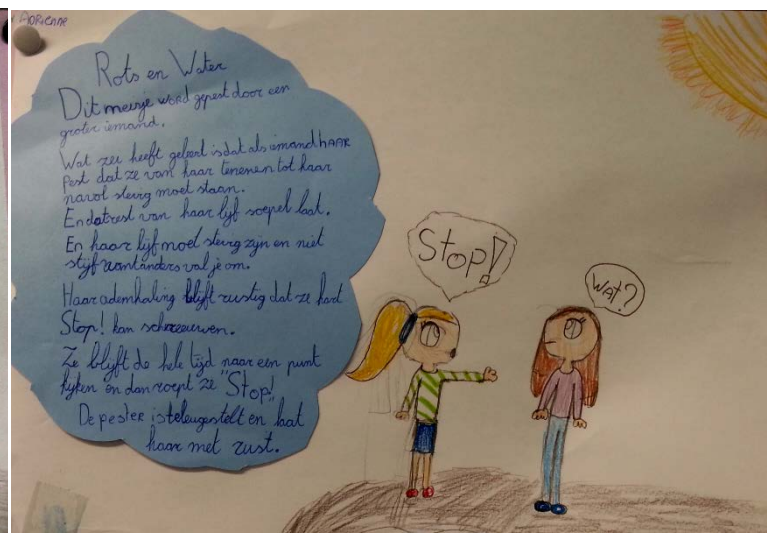 Adrienne
Rots en Water
Dit meisje word gepest door een
groter iemand.
Wat ze heeft geleert is dat als iemand HAAR
pest dat ze van haar tenenen tot haar
navol stevig moet staan.
En dat rest van haar lijf soepel laat.
En haar lijf moet stevig zijn en niet
stijf want anders val je om.
Haar ademhaling blijft rustig dat ze hard
Stop! kan schreeuwen.
Ze blijft de hele tijd naar een punt
kijken en dan roept ze "Stop!"
De pester is teleugestelt en laat
haar met rust.
Stop!
Wat?